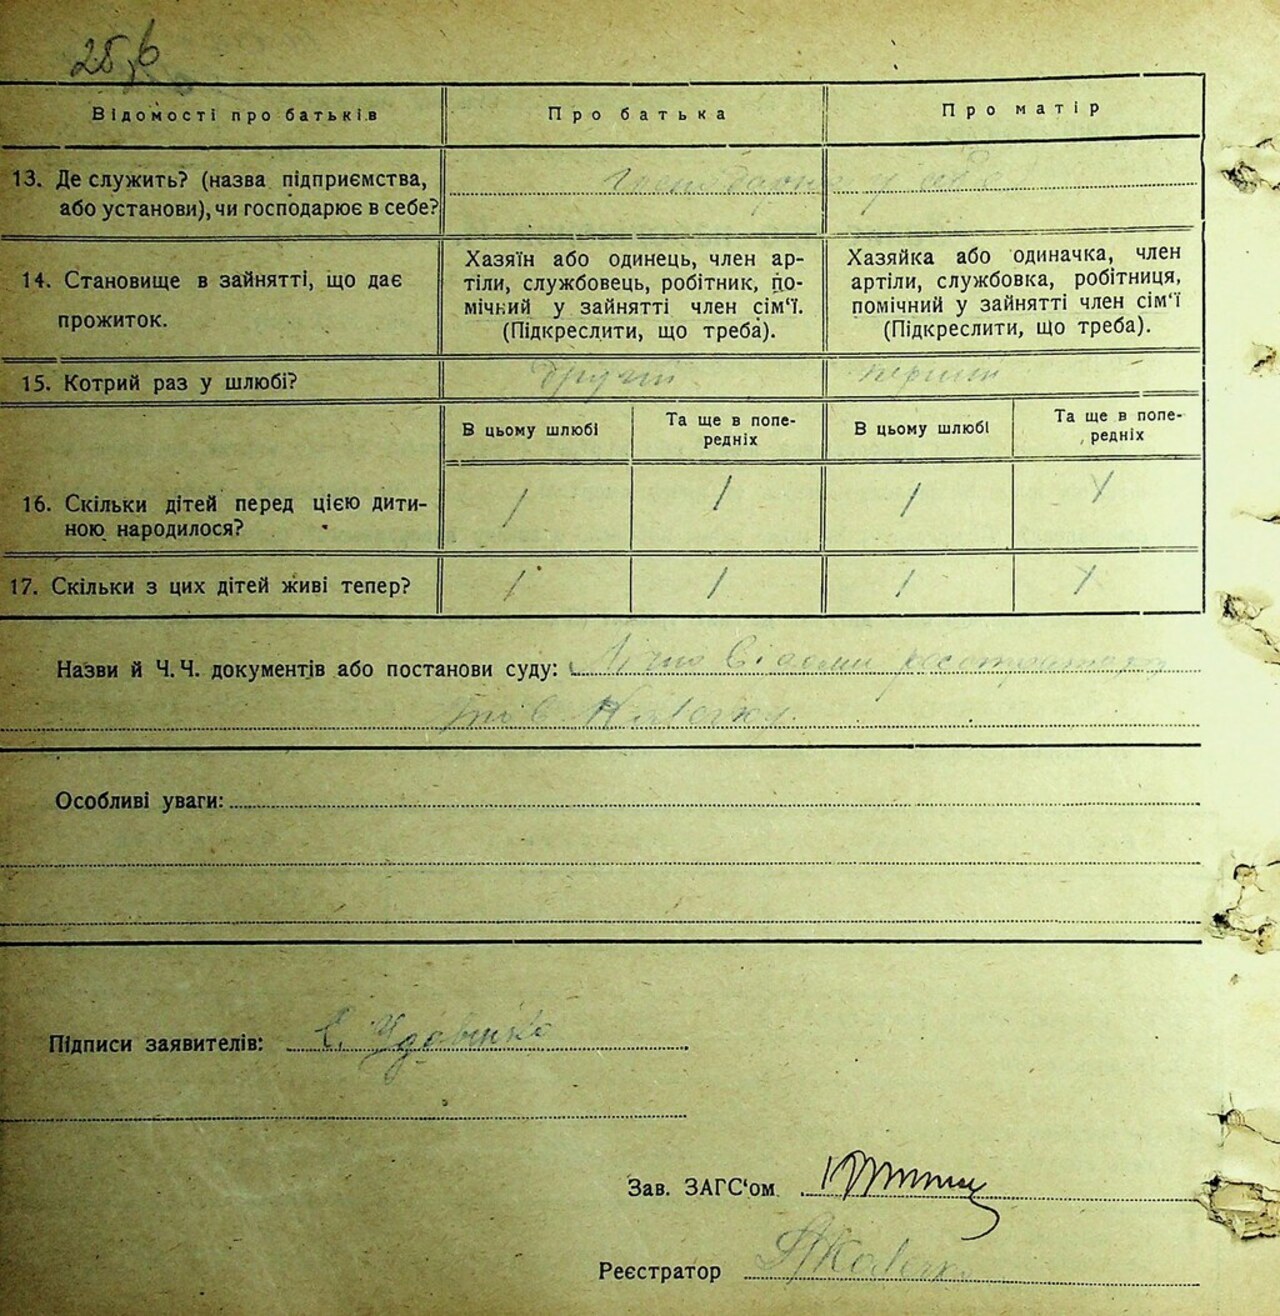 Відомості про батьків
Про батька
Про матір
13. Де служить? (назва підприємства,
або установи), чи господарює в себе?
Господарює у себе
14. Становище в зайнятті, що дає
прожиток.
Хазяїн або одинець, член ар-
тіли, службовець, робітник, по-
мічний у зайнятті член сім'ї.
(Підкреслити, що треба).
Хазяйка або одиначка, член
артіли, службовка, робітниця,
помічний у зайнятті член сім'ї
(Підкреслити, що треба).
15. Котрий раз у шлюбі?
другий
перший
В цьому шлюбі
Та ще в попе-
редніх
В цьому шлюбі
Та ще в попе-
редніх
16. Скільки дітей перед цією дити-
ною народилося?
/ / / /
17. Скільки з цих дітей живі тепер?
/ / / /
Назви й Ч.Ч. документів або постанови суду:
Особливі уваги:
Підписи заявителів:
Зав. ЗАГС'ом
Реєстратор